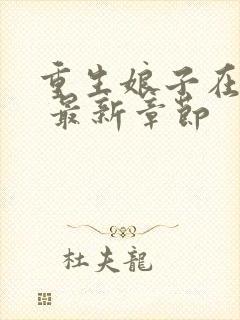 重生娘子在
最新章节
杜夫龍